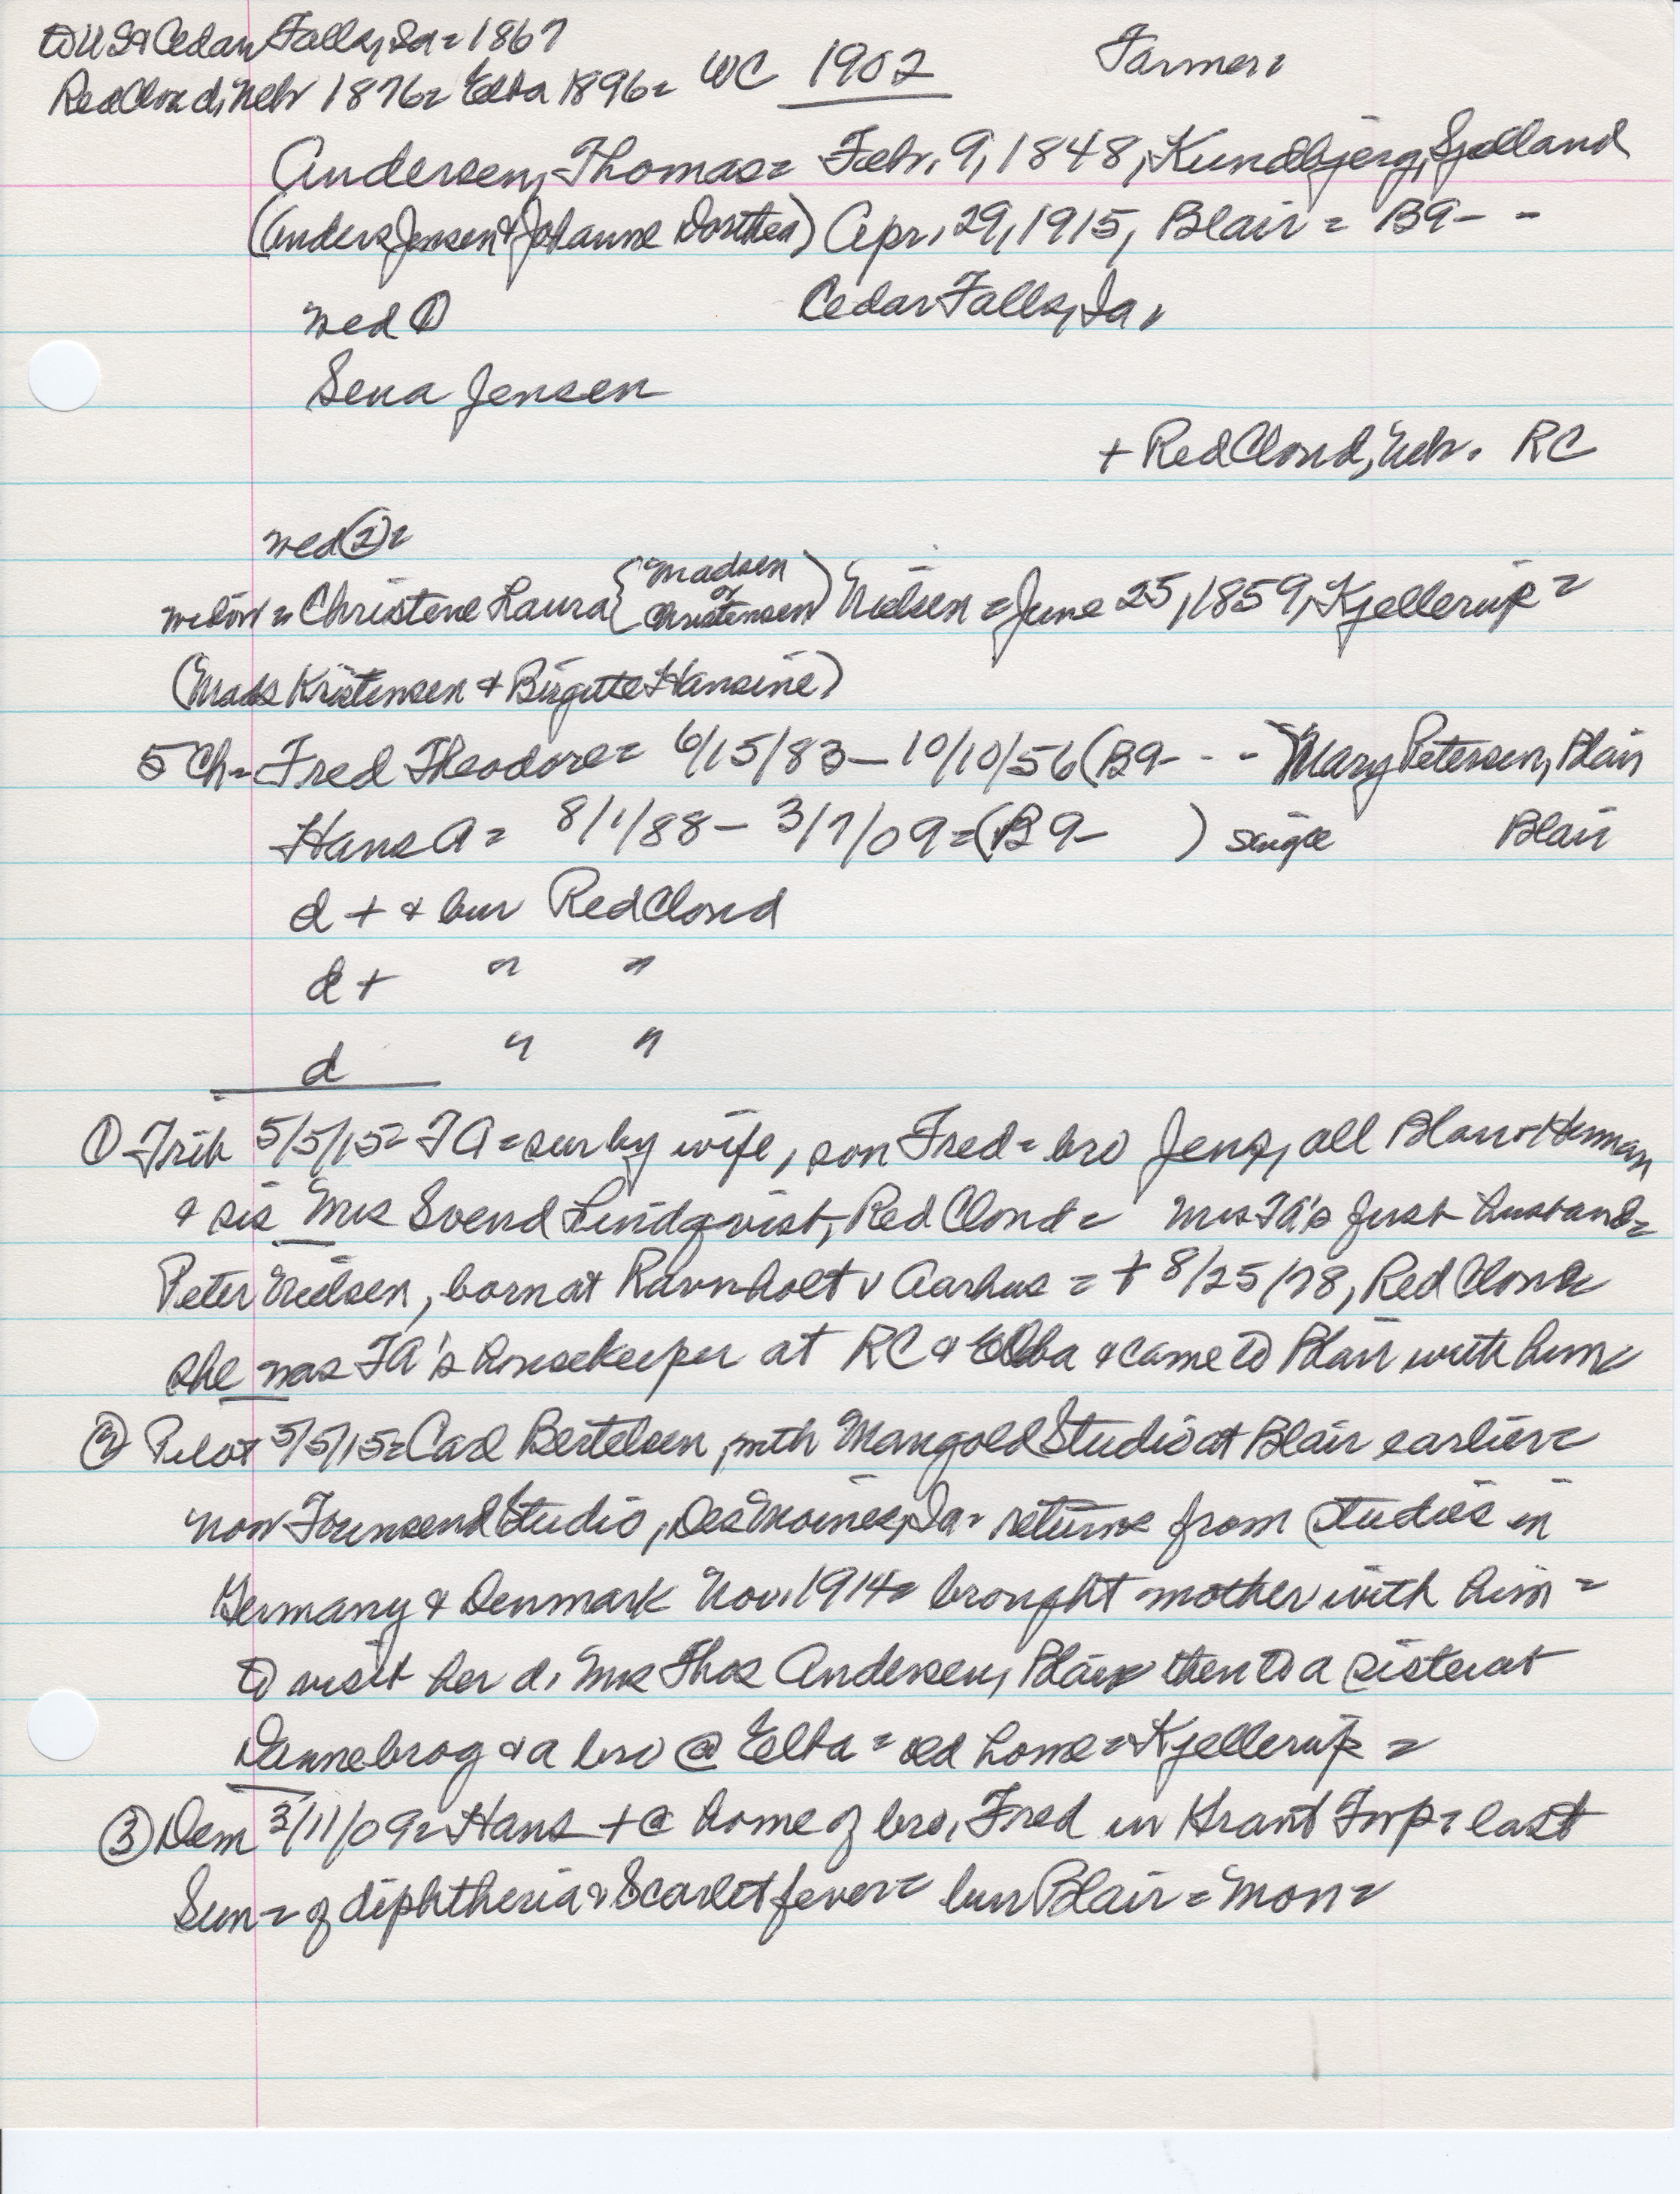 to US & Cedar Falls, Ia = 1867
Red Cloud, Nebr 1876 = Elba 1896 = WC 1902 Farmer,
Andersen, Thomas = Febr. 9, 1848, Kundbjerg, Sjelland
(Anders Jensen & Johanne Dorthea) Apr. 29, 1915, Blair = B9 - -
wed ① Cedar Falls, Ia,
Sena Jensen
+ Red Cloud, Nebr. RC
wed ② =
widow = Christene Laura { Madsen or Christensen } Nielsen = June 25, 1859, Kjellerup =
(Mads Kristensen & Birgitte Hansine)
5 Ch - Fred Theodore = 6/15/83 - 10/10/56 (B9 - - - Mary Petersen, Blair
Hans A = 8/1/88 - 3/7/09 = (B9- ) single Blair
d + & bur Red Cloud
d + " "
d " "
① Trib 5/5/15 = TA = sur by wife, son Fred = bro Jens, all Blair & Herman
& sis Mrs Svend Lindqvist, Red Cloud = Mrs TA's first husband =
Peter Nielsen, born at Ravnholt v Aarhus = + 8/25/78, Red Cloud
she was TA's housekeeper at RC & Elba & came to Blair with him
② Pilot 5/5/15 = Carl Bertelsen, with Mangold Studio at Blair earlier =
now Townsend Studio, Des Moines, Ia = returns from studies in
Germany & Denmark Nov. 1914 = brought mother with him =
to visit her d. Mrs Thos Andersen, Blair then to a sister at
Dannebrog & a bro @ Elba = old home = Kjellerup =
③ Dem 3/11/09 = Hans + @ home of bro. Fred in Grant Twp = last
Sun = of diphtheria & Scarlet fever = bur Blair = Mon =